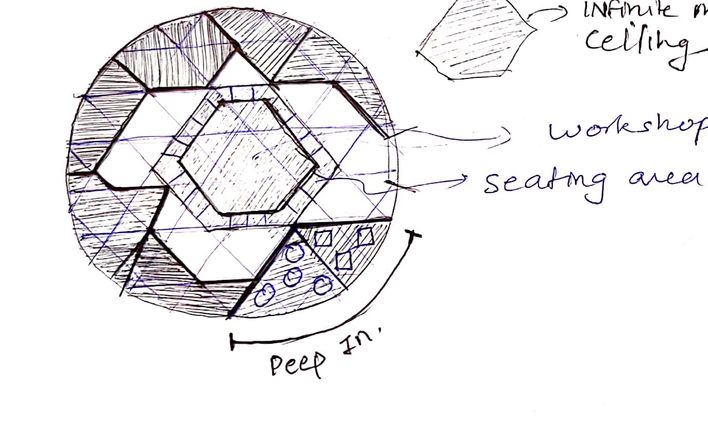 Infinite
Ceiling
workshop
seating area
Peep In.